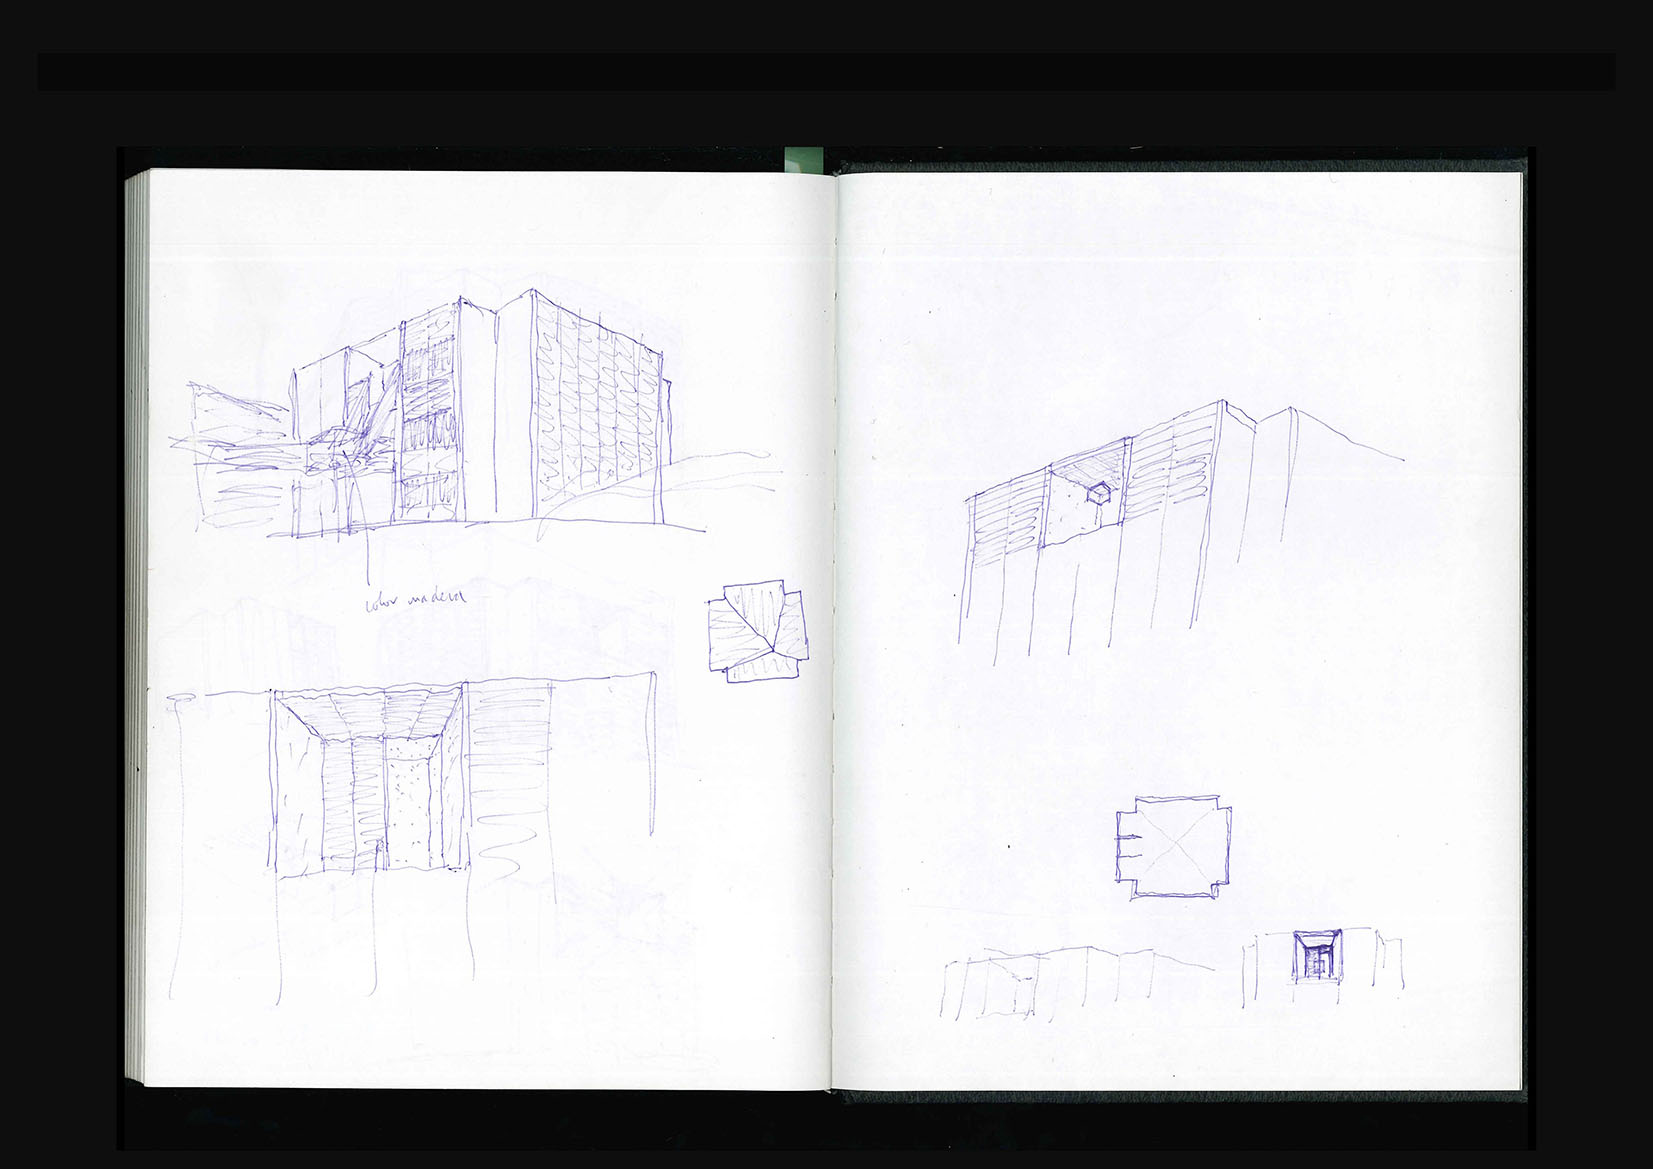 color madera